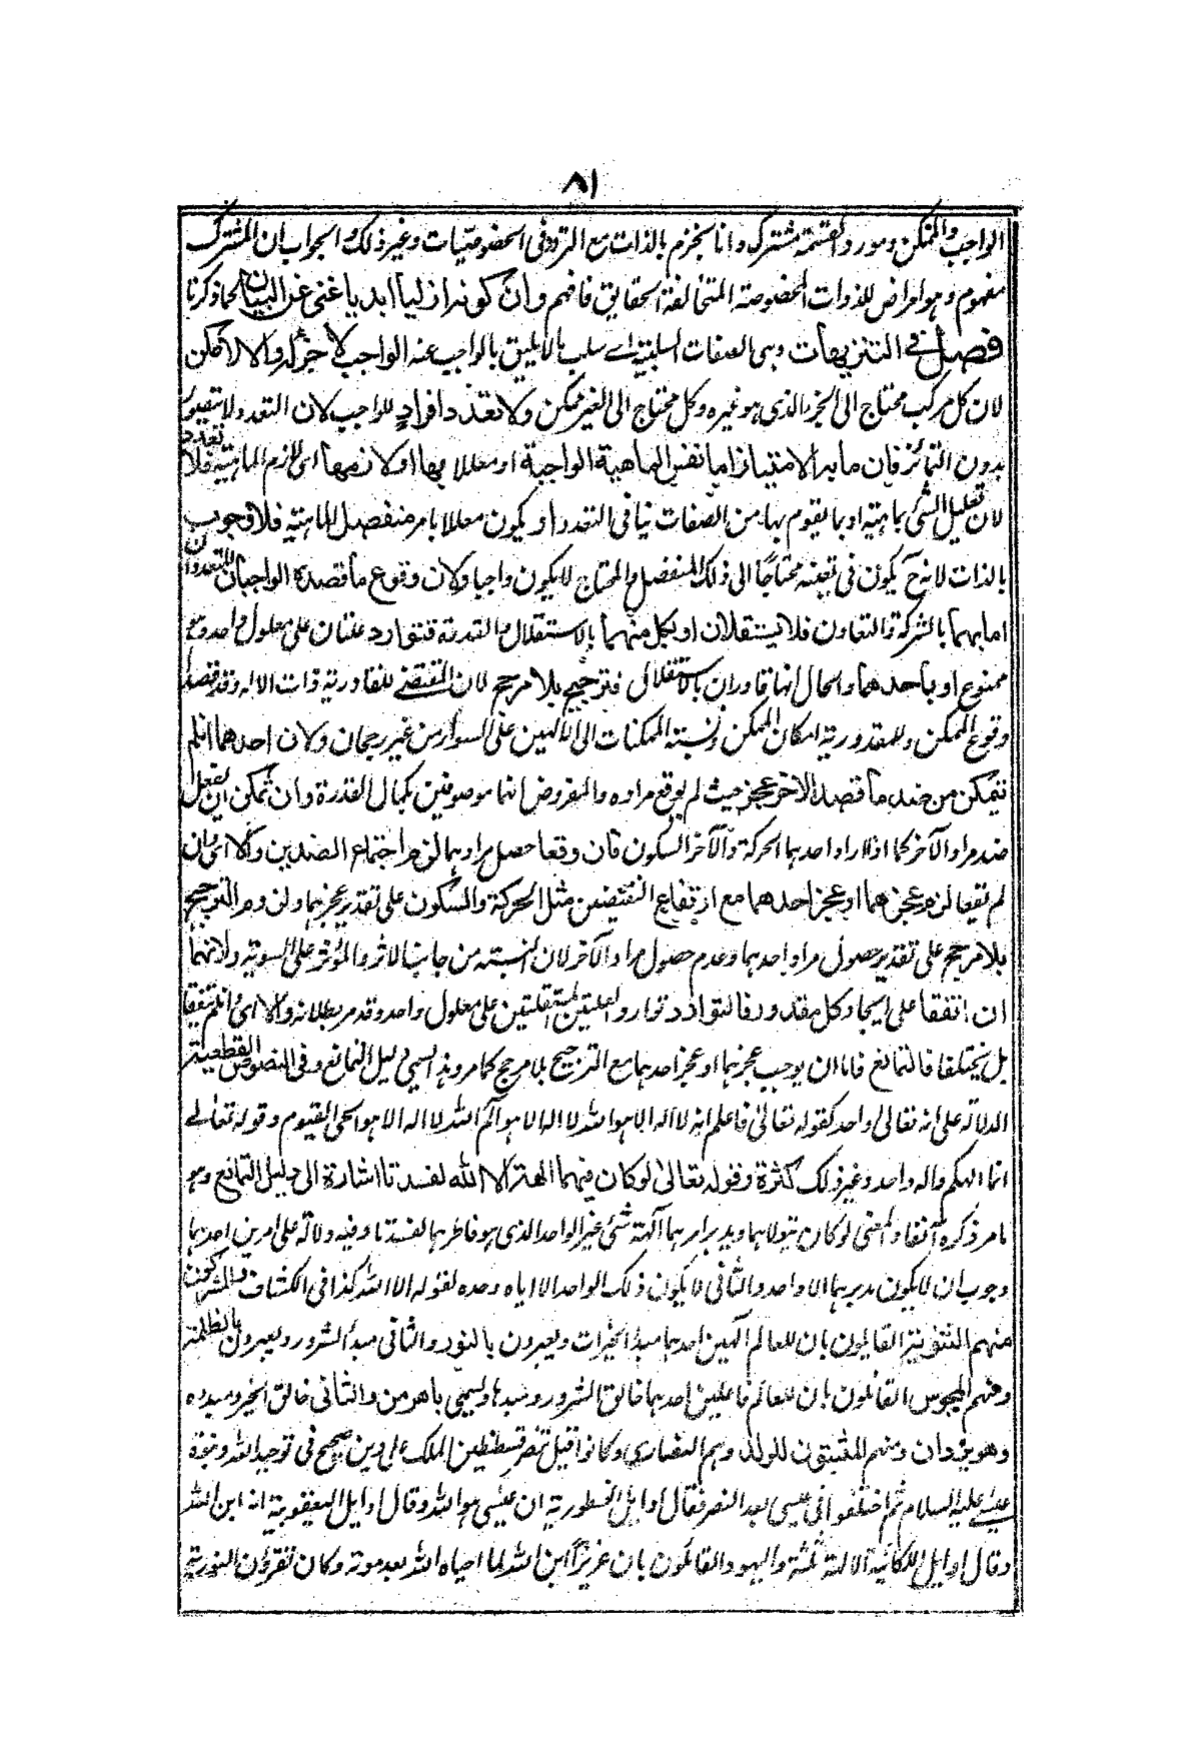 ٨١
الواجب والممكن ومورد القسمة مشترك وانا نجزم بالذات مع التردد فى الخصوصيات وغير ذلك والجواب ان المشترك
مفهوم وهو امر عارض للذوات المخصوصة المتخالفة الحقايق فافهم وان كونه ازليا ابديا غنى عن البيان لما ذكرنا
فصل فى التنزيهات وهى الصفات السلبية اے سلب ما لا يليق بالواجب عنه الواجب لا جزء له والا لامكن
لان كل مركب محتاج الى الجزء الذى هو غيره وكل محتاج الى الغير ممكن ولا تعدد افراد للواجب لان التعدد لا يتصور
بدون التمائز فان ما به الامتياز اما نفس الماهية الواجبة او معللا بها او لازمها اى لازم الماهية فلا تعدد
لان تعليل الشئ بماهيته او بما يقوم بها من الصفات ينافى التعدد او يكون معللا بامر منفصل للماهية فلا وجوب
بالذات لانه ح يكون فى تعينه محتاجا الى ذلك المنفصل والمحتاج لا يكون واجبا ولان وقوع ما قصده الواجبان المتعددان
اما بهما بالشركة والتعاون فلا يستقلان او بكل منهما بالاستقلال والقدرة فتوارد علتان على معلول واحد وهو
ممنوع او باحدهما والحال انهما قادران بالاستقلال فترجيح بلا مرجح لان المقتضى للقادرية ذات الاله وقد قصدا
وقوع الممكن وللمقدورية امكان الممكن ونسبة الممكنات الى الالهين على السواء من غير رجحان ولان احدهما ان لم
يتمكن من ضد ما قصده الآخر عجز حيث لم يوقع مراده والمفروض انهما موصوفين بكمال القدرة وان تمكن ان يفعل
ضد مراد الآخر كما اذا اراد احدهما الحركة والآخر السكون فان وقعا حصل مرادهما لزم اجتماع الضدين والا اى وان
لم تقعا لزم عجزهما او عجز احدهما مع ارتفاع النقيضين مثل الحركة والسكون على تقدير عجزهما ولزوم الترجيح
بلا مرجح على تقدير حصول مراد احدهما وعدم حصول مراد الآخر لان النسبته من جانب الاثر والمؤثر على السوية ولانهما
ان اتفقا على ايجاد كل مقدور فالتوارد توارد العلتين المستقلتين على معلول واحد وقد مر بطلانه والا اى وان لم يتفقا
بل يختلفا فالتمانع فاما ان يوجب عجزهما او عجز احدهما مع الترجيح بلا مرجح كما مر وهذا يسمى دليل التمانع وفى النصوص القطعية
الدلالة على انه تعالى واحد كقوله تعالى فاعلم انه لا اله الا هو الله لا اله الا هو الم الله لا اله الا هو الحى القيوم وقوله تعالے
انما الهكم واله واحد وغير ذلك كثرة وقوله تعالى لو كان فيهما الهة الا الله لفسدتا اشارة الى دليل التمانع وهو
ما مر ذكره آنفا والمعنى لو كان يتولاهما ويدبر امرهما آلهة شئ غير الواحد الذى هو فاطرهما لفسدتا وفيه دلالة على امرين احدهما
وجوب ان لا يكون مدبرهما الا واحد والثانى لا يكون ذلك الواحد الا اياه وحده لقوله الا الله كذا فى الكشاف والمشركون
منهم الثنوية القايلون بان للعالم الهين احدهما مبدأ الخيرات ويعبرون بالنور والثانى مبدأ الشرور ويعبرون بالظلمة
ومنهم المجوس القائلون بان للعالم فاعلين احدهما خالق الشرور ومبدها ويسمى باهرمن والثانى خالق الخير ومبدءه
وهو يزدان ومنهم المثبتون للولد وهم النصارى وكانوا قبل تنصر قسطنطين الملك على دين صحيح فى توحيد الله ونبوة
عيسے عليه السلام ثم اختلفوا فى عيسى بعد التنصر فقال اوايل النسطورية ان عيسى هو الله وقال اوايل اليعقوبية انه ابن الله
وقال اوايل الملكائية الالهة ثلثة واليهود القائلون بان عزيرا ابن الله لما احياه الله بعد موته وكان تقرؤن التورية